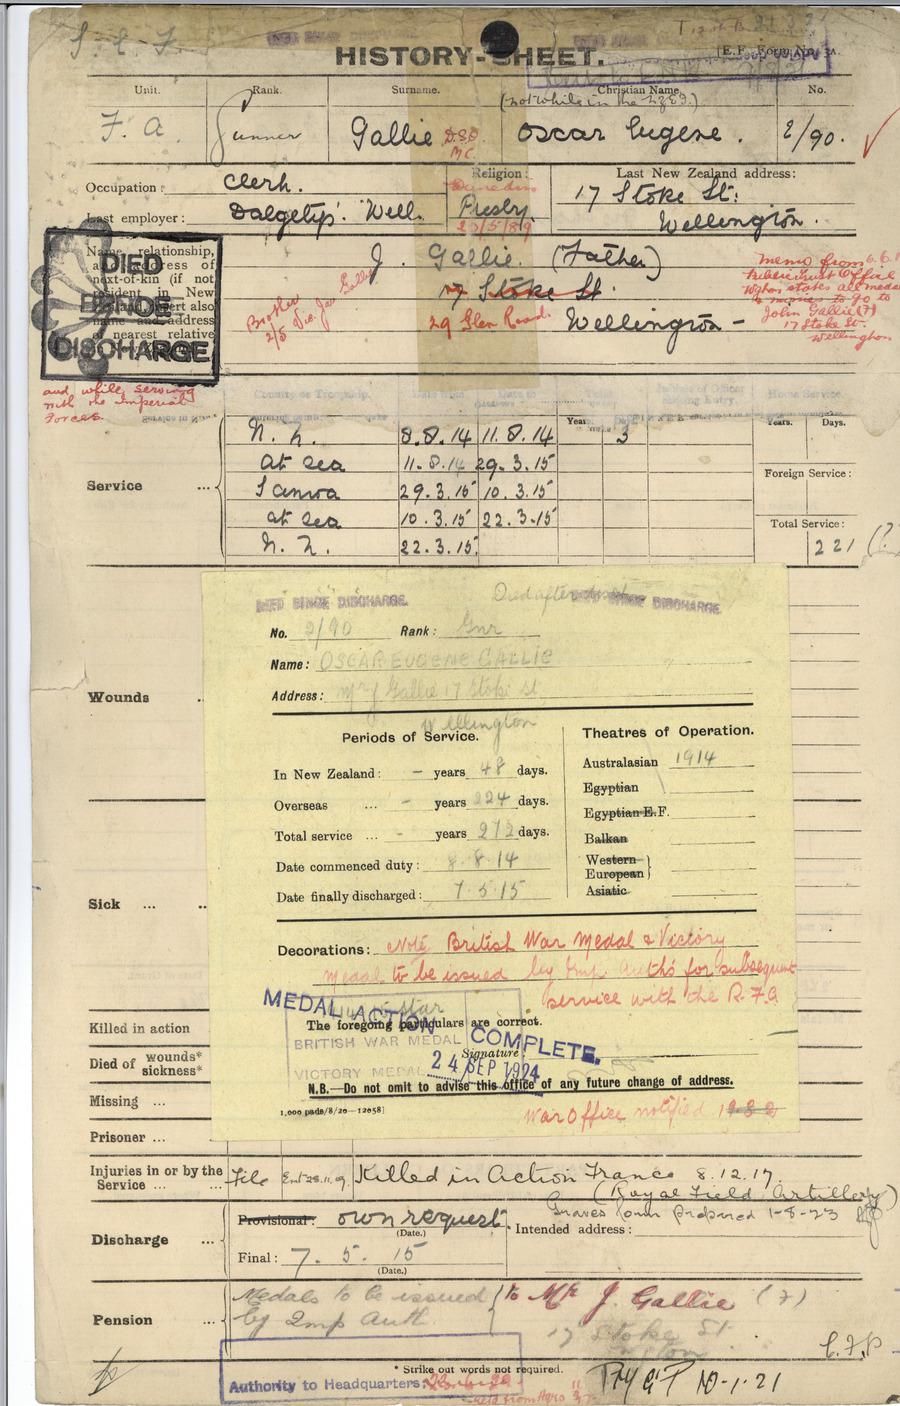 S. E. F.
DIED SINCE DISCHARGE
HISTORY-SHEET.
[E.F. Form No. 3A.
Unit. Rank. Surname. Christian Name. No.
(not while in the N.Z.E.F.)
F. A Gunner Gallie D.S.O. M.C. Oscar Eugene. 2/90.
Occupation: Clerk. Religion: Last New Zealand address:
Dunedin 17 Stoke St:
Last employer: Dalgety's. Well. Presby. Wellington.
20/5/89
Name, relationship, and address of next-of-kin (if not resident in New Zealand, insert also name and address of nearest relative
DIED
BEFORE
DISCHARGE
J. Gallie. (Father)
17 Stoke St.
29 Glen Road. Wellington –
Brother
2/5 Vic. Jas Gallie
Memo from
Public Trust Office
Wgton states all medals
& monies to go to
John Gallie (7)
17 Stoke St.
Wellington
and while serving
with the Imperial
Forces.
Years. Days. Home Service.
Years. Days.
Service ...
N. Z. 8.8.14 11.8.14 3
At sea 11.8.14 29.3.15
Foreign Service:
Samoa 29.3.15 10.3.15
at sea 10.3.15 22.3.15
Total Service:
N. Z. 22.3.15. 221
Wounds ..
Sick ... ..
Killed in action
Died of wounds*
sickness*
Missing ...
Prisoner ...
DIED SINCE DISCHARGE. DIED SINCE DISCHARGE
No. 2/90 Rank: Gnr
Name: OSCAR EUGENE GALLIE
Address: Mr J Gallie 17 Stoke st
Wellington
Periods of Service. Theatres of Operation.
In New Zealand: – years 48 days. Australasian 1914
Overseas ... – years 224 days. Egyptian
Total service ... – years 272 days. Egyptian E.F.
Balkan
Date commenced duty: 8.8.14 Western
European
Date finally discharged: 7.5.15 Asiatic
Decorations: Note British War Medal & Victory
Medal to be issued by Imp Auth's for subsequent
service with the R.F.A
1914-15 Star
MEDAL ACTION
The foregoing particulars are correct.
BRITISH WAR MEDAL COMPLETE.
Signature:
VICTORY MEDAL 24 SEP 1924
N.B.—Do not omit to advise this office of any future change of address.
1,000 pads/8/20—12058]
War Office notified
Injuries in or by the Service ... File Ent 28.11.19 Killed in Action France 8.12.17
(Royal Field Artillery)
Graves form prepared 1-8-23
Discharge ... Provisional: own request. Intended address:
(Date.)
Final: 7. 5. 15
(Date.)
Pension ... Medals to be issued to Mr J. Gallie (7)
by Imp Auth. 17 Stoke St
Wgton
* Strike out words not required.
Authority to Headquarters:
10-1-21